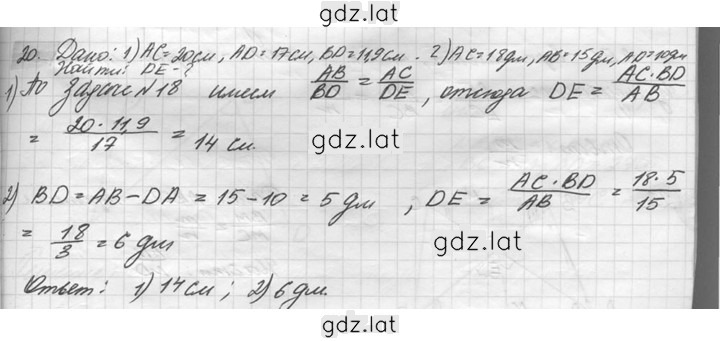 gdz.lat
20. Дано: 1) AC = 20см, AD = 17см, BD = 11,9см. 2) AC = 18дм, AB = 15дм, AD = 10дм
Найти: DE - ?
1) По задаче N 18 имеем AB/BD = AC/DE, отсюда DE = AC·BD/AB
= 20·11,9/17 = 14 см.
gdz.lat
2) BD = AB - DA = 15 - 10 = 5 дм, DE = AC·BD/AB = 18·5/15
= 18/3 = 6 дм
gdz.lat
Ответ: 1) 14 см; 2) 6 дм.
gdz.lat